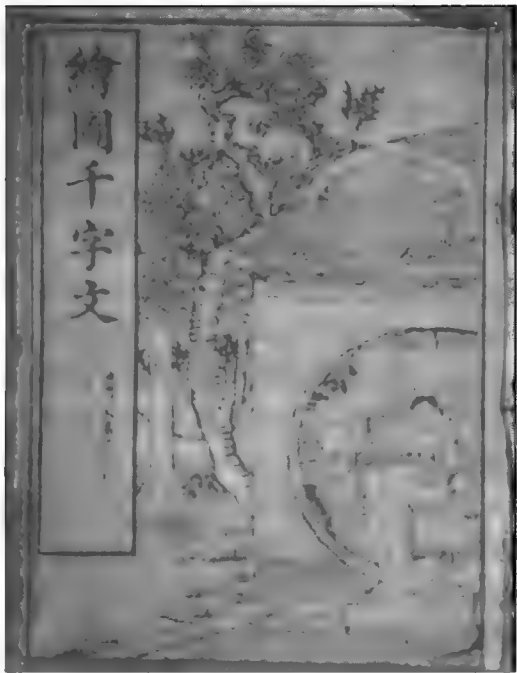 繪圖千字文